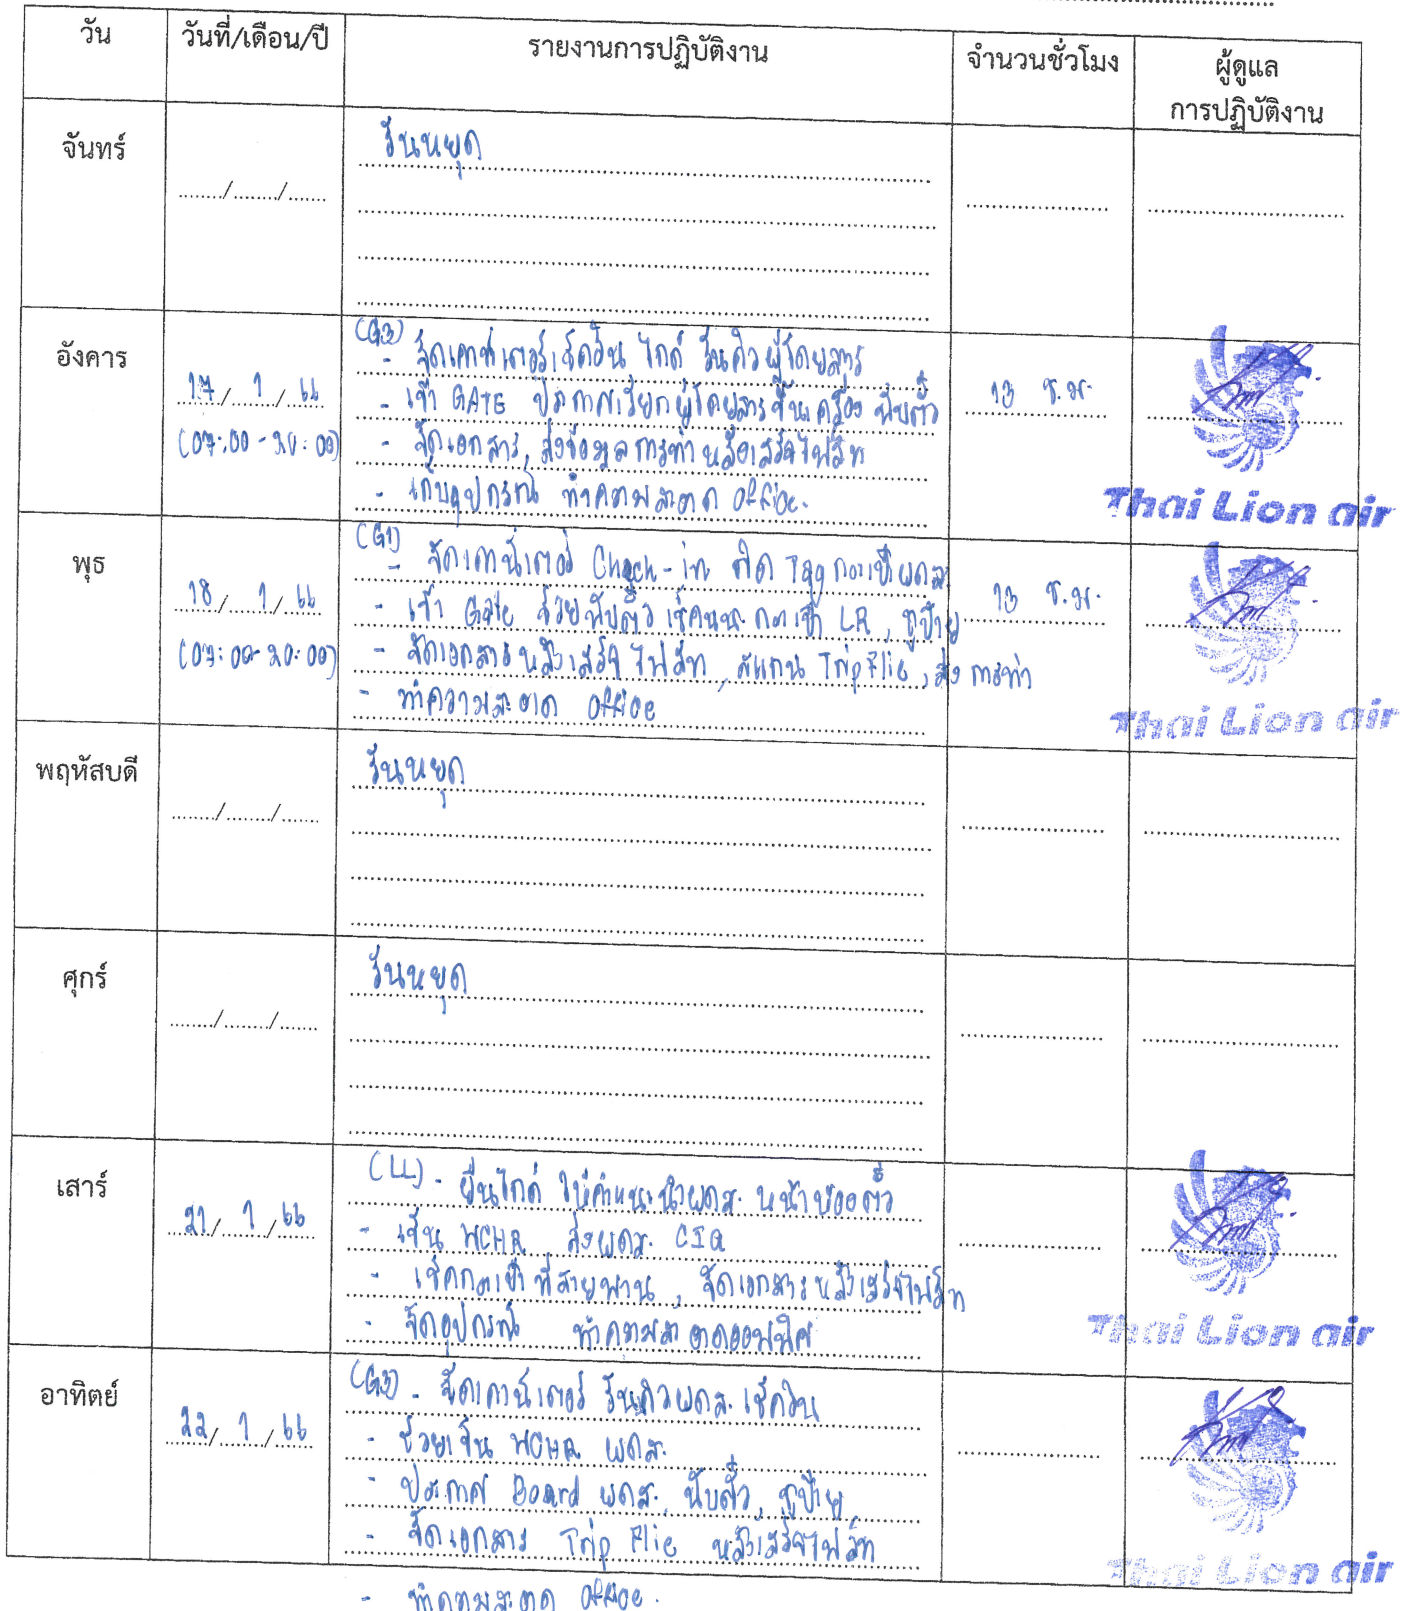 วัน วันที่/เดือน/ปี รายงานการปฏิบัติงาน จำนวนชั่วโมง ผู้ดูแล
การปฏิบัติงาน
จันทร์ วันหยุด
......./......../.......
อังคาร (G3)
- จัดเคาท์เตอร์เช็คอิน ไกด์ รันคิวผู้โดยสาร
17/ 1 / 66 - เข้า GATE ประกาศเรียกผู้โดยสารขึ้นเครื่อง นับตั๋ว 13 ช.ม.
(07:00-20:00) - จัดเอกสาร, ส่งข้อมูลการท่าหลังเสร็จไฟล์ท
- เก็บอุปกรณ์ ทำความสะอาด office.
Thai Lion air
พุธ (G1)
- จัดเคาน์เตอร์ Check-in ติด Tag กระเป๋าผดส
18/ 1 / 66 - เข้า Gate ช่วยนับตั๋ว เช็คนน. กระเป๋า LR, ชูป้าย 13 ช.ม.
(07:00-20:00) - จัดเอกสารหลังเสร็จไฟล์ท, สแกน Trip Flie, ส่งการท่า
- ทำความสะอาด office
Thai Lion air
พฤหัสบดี วันหยุด
......./......../.......
ศุกร์ วันหยุด
......./......../.......
เสาร์ (LL) - ยืนไกด์ ให้คำแนะนำผดส. หน้าห้องตั๋ว
21/ 1 / 66 - เข็น WCHR ส่งผดส. CIQ
- เช็คกระเป๋าที่สายพาน, จัดเอกสารหลังเสร็จไฟล์ท
- จัดอุปกรณ์ ทำความสะอาดออฟฟิศ
Thai Lion air
อาทิตย์ (G3) - จัดเคาน์เตอร์ รันคิวผดส. เช็คอิน
22/ 1 / 66 - ช่วยเข็น WCHR ผดส.
- ประกาศ Board ผดส., นับตั๋ว, ชูป้าย
- จัดเอกสาร Trip Flie หลังเสร็จไฟล์ท
Thai Lion air
- ทำความสะอาด office.